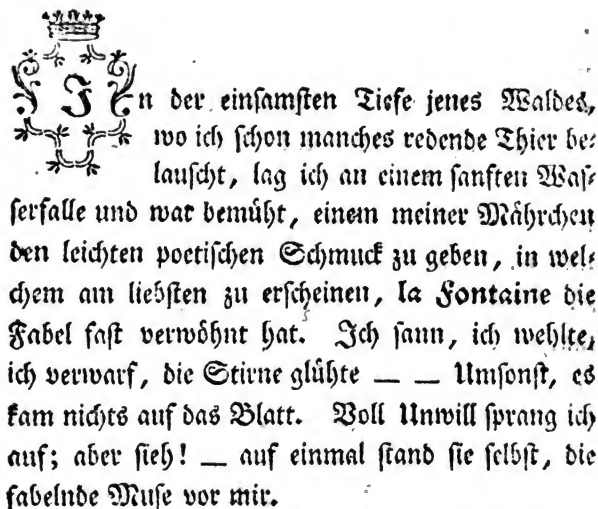 In der einsamsten Tiefe jenes Waldes,
wo ich schon manches redende Thier be-
lauscht, lag ich an einem sanften Was-
serfalle und war bemüht, einem meiner Mährchen
den leichten poetischen Schmuck zu geben, in wel-
chem am liebsten zu erscheinen, la Fontaine die
Fabel fast verwöhnt hat. Ich sann, ich wehlte,
ich verwarf, die Stirne glühte — — Umsonst, es
kam nichts auf das Blatt. Voll Unwill sprang ich
auf; aber sieh! — auf einmal stand sie selbst, die
fabelnde Muse vor mir.